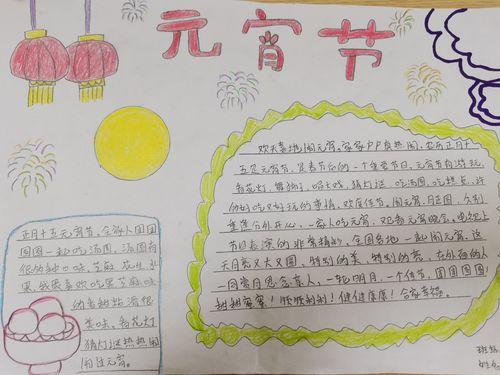 元宵节
欢天喜地闹元宵,家家户户真热闹,农历正月十
五是元宵节,是春节后的一个重要节日,元宵节有游玩,
看花灯,
猜灯谜、吃汤圆、吃
好吃又好玩的事情,欢度佳节,闹元宵,月正圆,今刻
重逢分外开心,一家人吃元宵,观看元宵晚会,电视上
节目表演的非常精彩,全国各地一起闹元宵,这
天月亮又大又圆,特别的美,特别的亮,在外面的人
一同赏月思念亲人,一轮明月,一个佳节,团团圆圆!
甜甜蜜蜜!顺顺利利!健健康康!合家幸福。
正月十五元宵节,全家人团团
圆圆一起吃汤圆,汤圆有
很多种口味,芝麻、花生、水
果,我最喜欢吃黑芝麻味
的香甜粘滑很
美味,看花灯
猜灯谜热热闹
闹过元宵。
班级
姓名